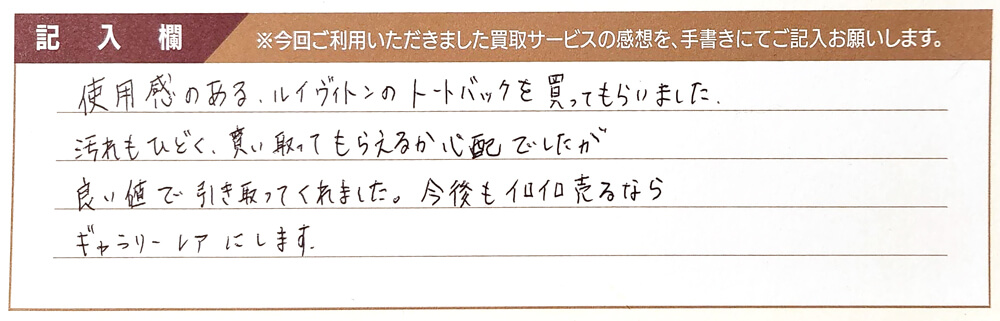 記入欄
※今回ご利用いただきました買取サービスの感想を、手書きにてご記入お願いします。
使用感のある、ルイヴィトンのトートバックを買ってもらいました。
汚れもひどく、買い取ってもらえるか心配でしたが
良い値で引き取ってくれました。今後もイロイロ売るなら
ギャラリーレアにします。